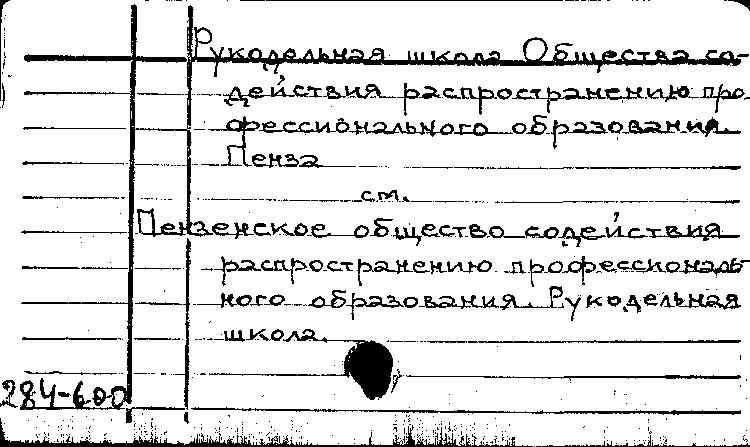 Рукодельная школа Общества со-
действия распространению про
фессионального образования.
Пенза
см.
Пензенское общество содействия
распространению профессиональ-
ного образования. Рукодельная
школа.
284-600